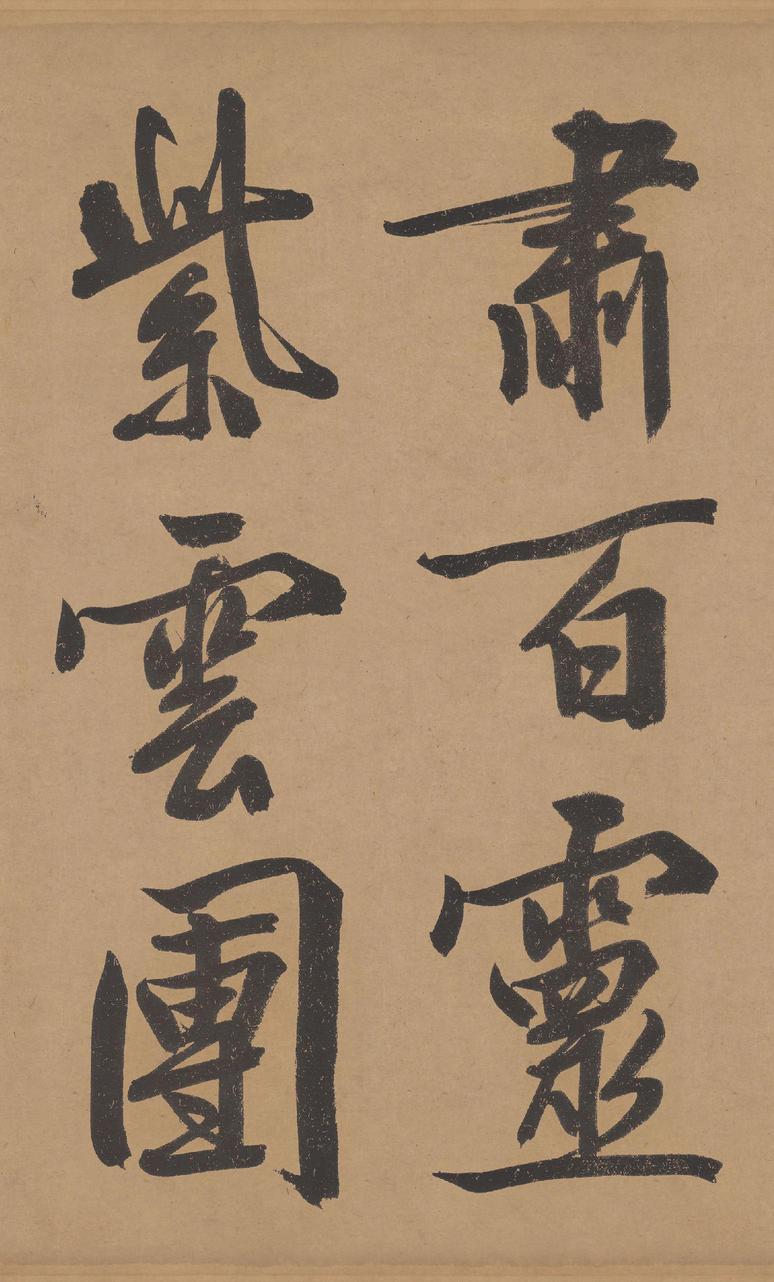 肅百靈
紫雲團